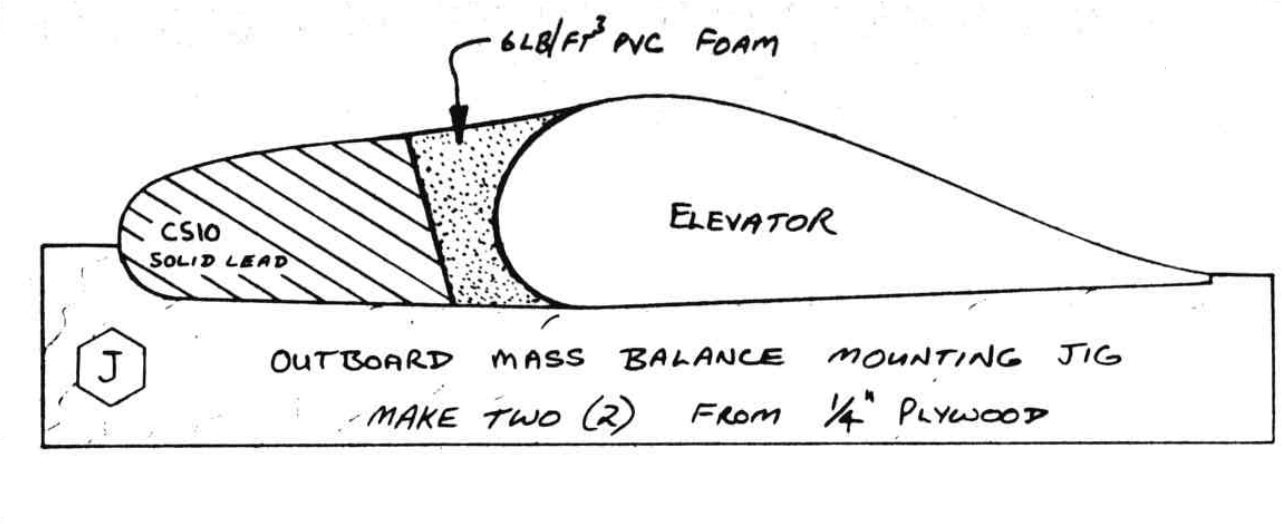 6LB/FT³ PVC FOAM
ELEVATOR
CS10
SOLID LEAD
J
OUTBOARD MASS BALANCE MOUNTING JIG
MAKE TWO (2) FROM 1/4" PLYWOOD